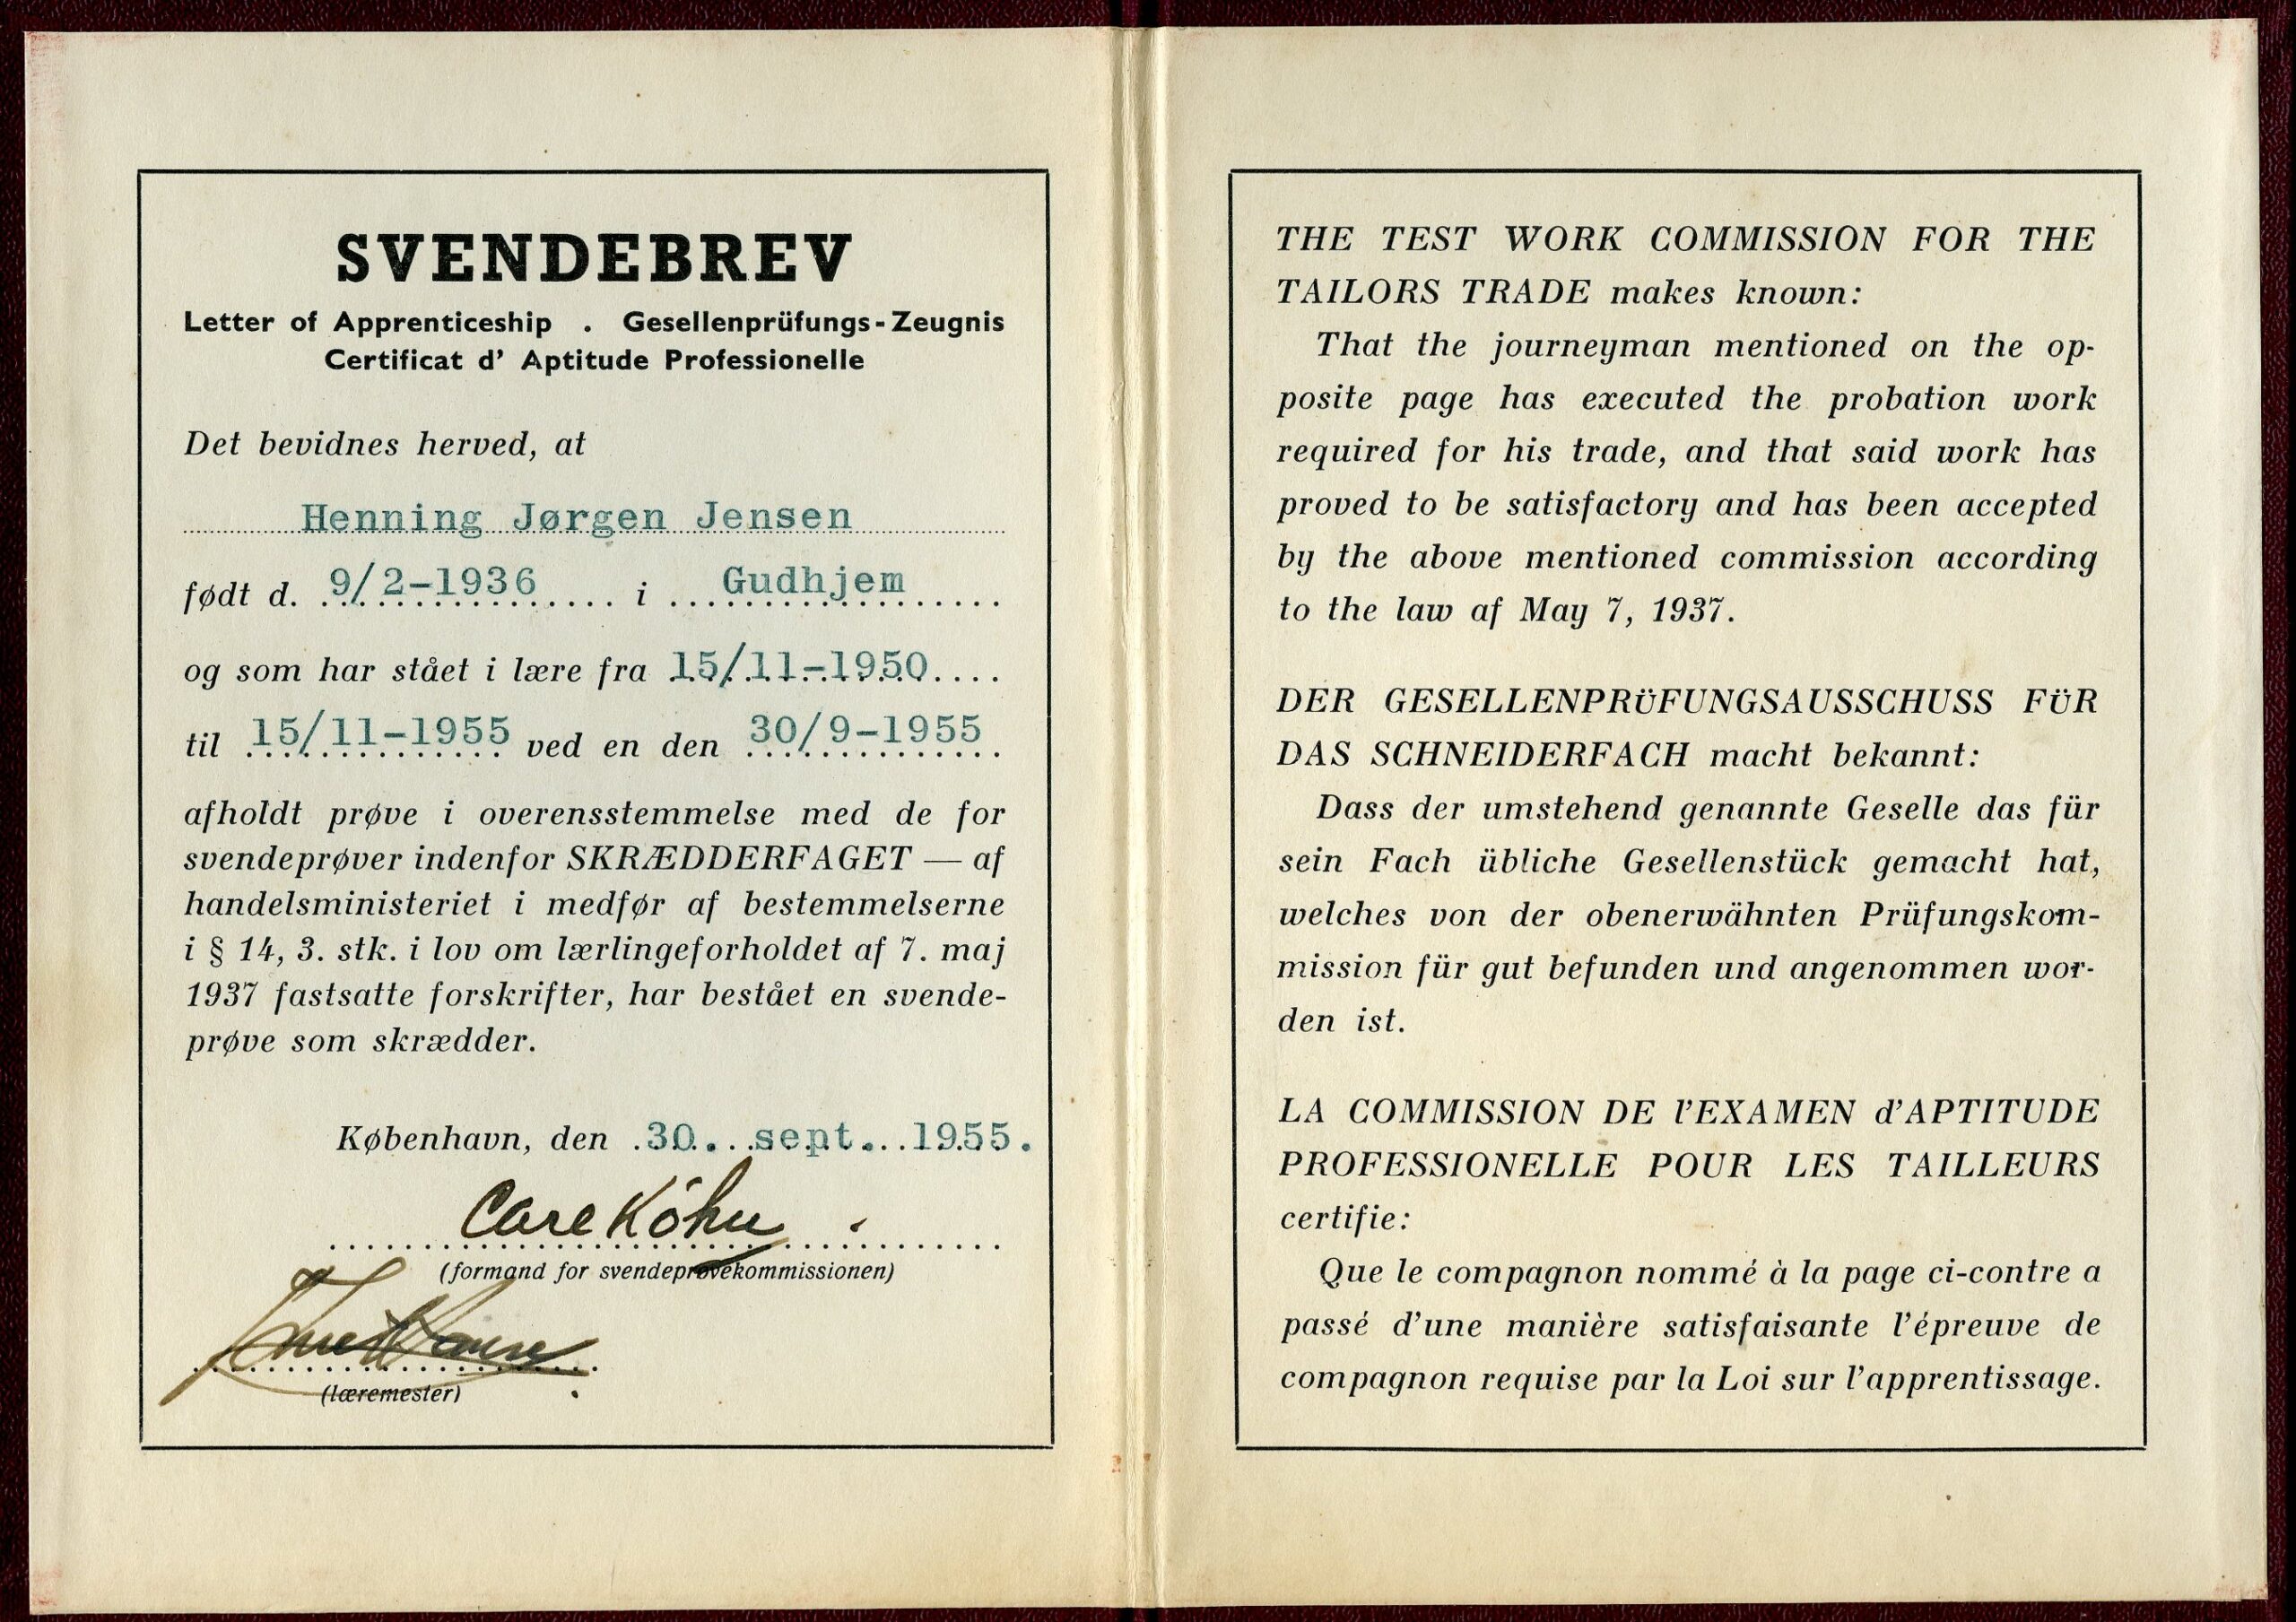 SVENDEBREV
Letter of Apprenticeship . Gesellenprüfungs-Zeugnis
Certificat d' Aptitude Professionelle
Det bevidnes herved, at
Henning Jørgen Jensen
født d. 9/2-1936 i Gudhjem
og som har stået i lære fra 15/11-1950
til 15/11-1955 ved en den 30/9-1955
afholdt prøve i overensstemmelse med de for
svendeprøver indenfor SKRÆDDERFAGET — af
handelsministeriet i medfør af bestemmelserne
i § 14, 3. stk. i lov om lærlingeforholdet af 7. maj
1937 fastsatte forskrifter, har bestået en svende-
prøve som skrædder.
København, den 30. sept. 1955.
(formand for svendeprøvekommissionen)
(læremester)
THE TEST WORK COMMISSION FOR THE
TAILORS TRADE makes known:
That the journeyman mentioned on the op-
posite page has executed the probation work
required for his trade, and that said work has
proved to be satisfactory and has been accepted
by the above mentioned commission according
to the law af May 7, 1937.
DER GESELLENPRÜFUNGSAUSSCHUSS FÜR
DAS SCHNEIDERFACH macht bekannt:
Dass der umstehend genannte Geselle das für
sein Fach übliche Gesellenstück gemacht hat,
welches von der obenerwähnten Prüfungskom-
mission für gut befunden und angenommen wor-
den ist.
LA COMMISSION DE l'EXAMEN d'APTITUDE
PROFESSIONELLE POUR LES TAILLEURS
certifie:
Que le compagnon nommé à la page ci-contre a
passé d'une manière satisfaisante l'épreuve de
compagnon requise par la Loi sur l'apprentissage.